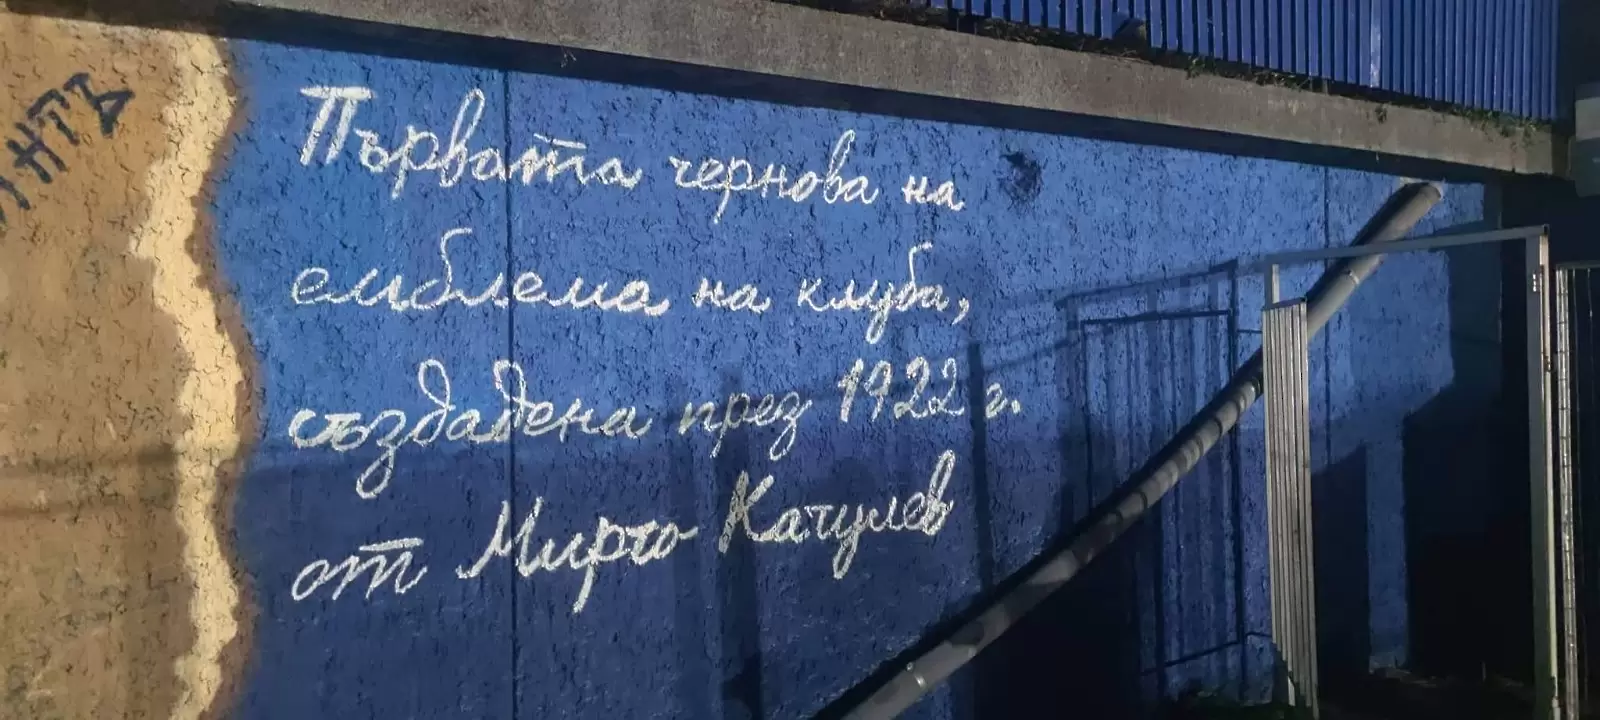 НТЪ
Първата чернова на
емблема на клуба,
създадена през 1922 г.
от Мирчо Качулев